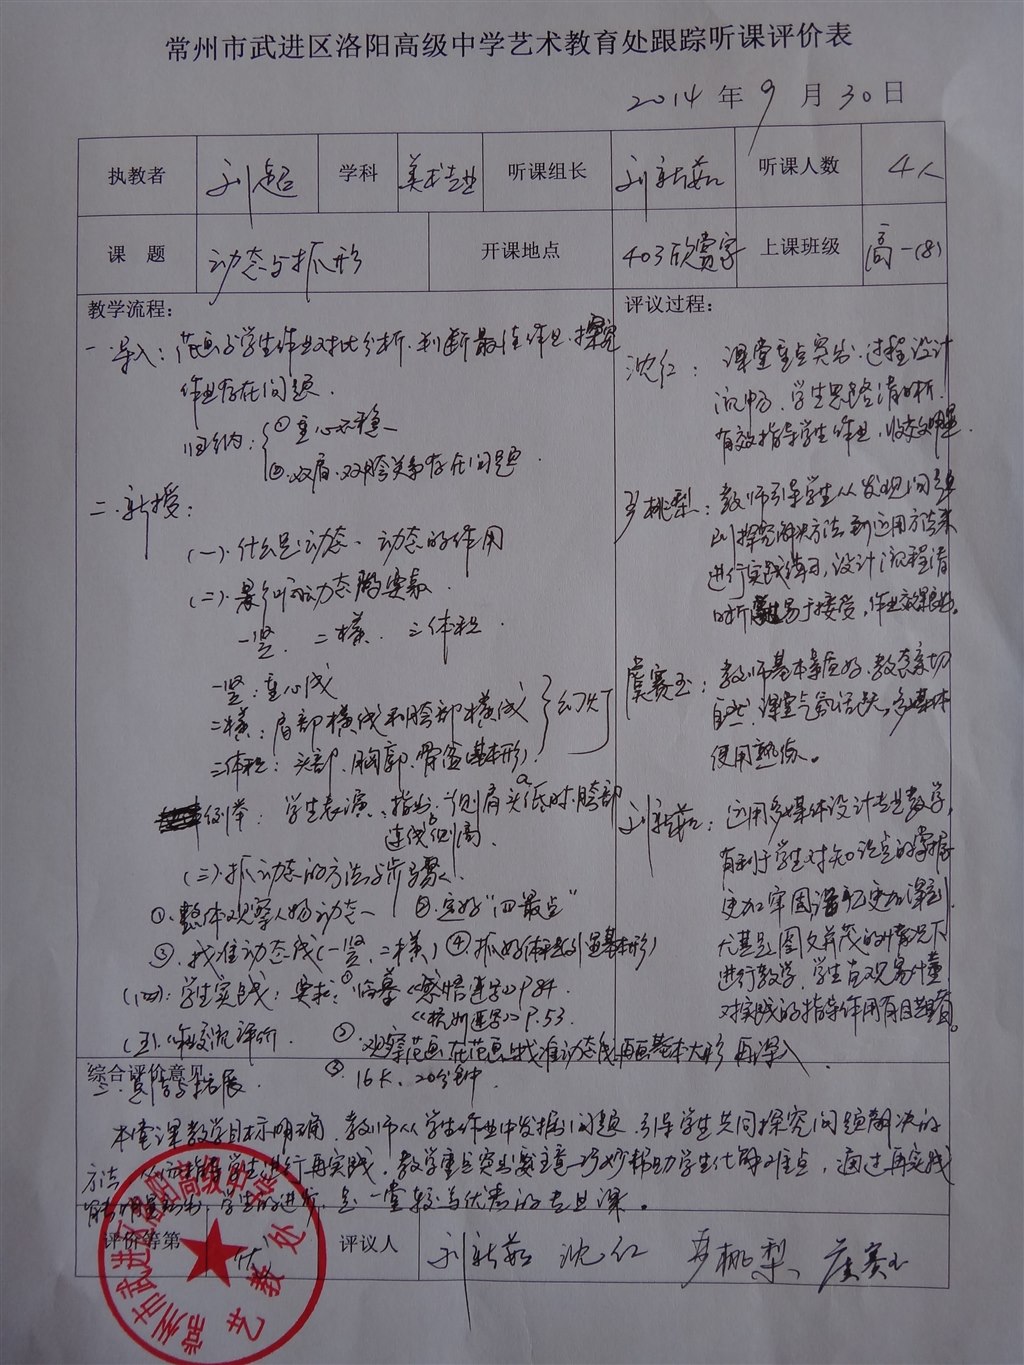 常州市武进区洛阳高级中学艺术教育处跟踪听课评价表
2014 年 9 月 30 日
执教者 刘超 学科 美术专业 听课组长 刘新茹 听课人数 4人
课 题 动态与抓形 开课地点 403欣赏室 上课班级 高一(8)
教学流程：
一、导入：范画与学生作业对比分析，判断最佳作业，探究
作业存在问题．
归纳：①重心不稳
②双肩、双胯关系存在问题．
二、新授：
(一)．什么是动态、动态的作用
(二)．影响动态的要素．
一竖．二横．三体积．
一竖：重心线
二横：肩部横线和胯部横线 幻灯
三体积：头部、胸廓、骨盆(基本形)
例举：学生表演、指出：一侧肩头低时，胯部
连线 侧高．
(三)抓动态的方法与步骤．
①．整体观察人物动态 ②．定好“四最点”
③．找准动态线(一竖、二横) ④抓好体积 基本形)
(四)：学生实践：要求：①临摹《感悟速写》P.84
《杭州速写》P.53．
②．观察范画，在范画上找准动态线，再画基本大形，再深入
③ 16K、20分钟．
(五)．作业交流评价．
三．总结与拓展
评议过程：
沈红：课堂重点突出、过程设计
流畅、学生思路清晰．
有效指导学生作业，收效明显．
彭桃梨：教师引导学生从发现问题
到探究解决方法，到运用方法来
进行实践练习，设计流程清
晰 易于接受，作业效果良好。
虞赛玉：教师基本素质好、教态亲切
自然、课堂气氛活跃，多媒体
使用熟练。
刘新茹：运用多媒体设计专业教学，
有利于学生对知识点的掌握
更加牢固，记忆更加深刻，
尤其是图文并茂的情况下
进行教学，学生直观易懂
对实践的指导作用有目共睹。
综合评价意见
本堂课教学目标明确，教师从学生作业中发掘问题，引导学生共同探究问题解决的
方法，从而指导学生进行再实践，教学重点突出 巧妙帮助学生化解难点，通过再实践
学生的进步，是一堂较为优秀的专业课。
评价等第 优 评议人 刘新茹 沈红 彭桃梨、虞赛玉
常州市武进区洛阳高级中学
艺教处